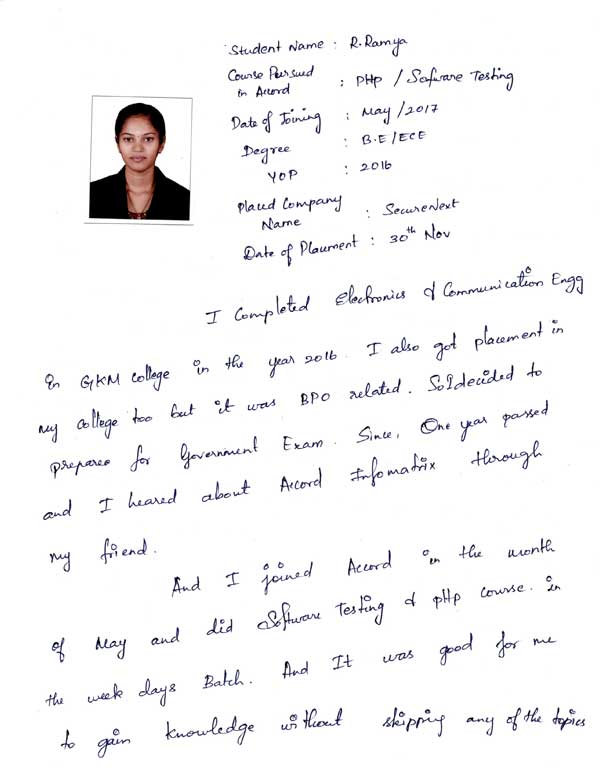 Student Name : R. Ramya
Course Pursued
in Accord : PHP / Sofware Testing
Date of Joining : May / 2017
Degree : B.E / ECE
YOP : 2016
Placed Company
Name : SecureNext
Date of Placement : 30th Nov
I Completed Electronics & Communication Engg
in GKM college in the year 2016. I also got placement in
my college too but it was BPO related. So I decided to
prepare for Government Exam. Since, One year passed
and I heared about Accord Infomatrix through
my friend.
And I joined Accord in the month
of May and did Software Testing & PHP course. in
the week days Batch. And It was good for me
to gain knowledge without skipping any of the topics